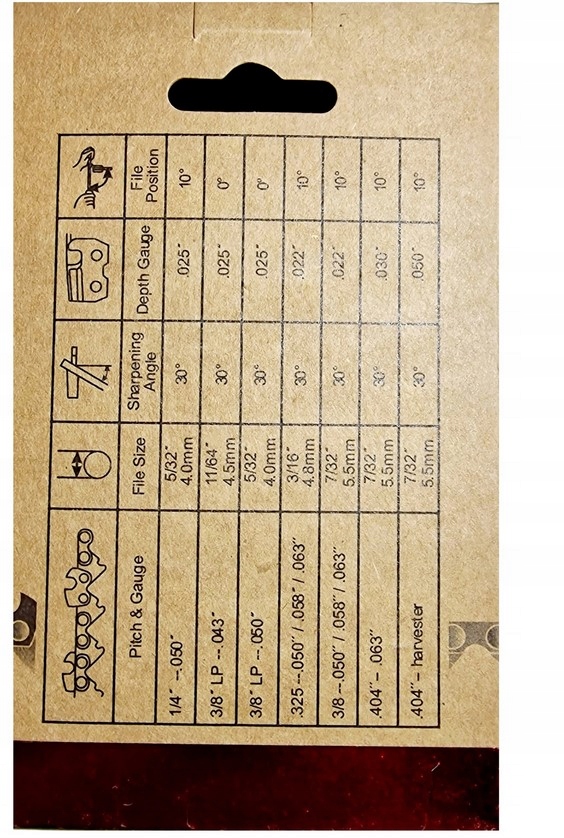 Pitch & Gauge File Size Sharpening Angle Depth Gauge File Position
1/4″ –.050″ 5/32″ 4.0mm 30° .025″ 10°
3/8″ LP --.043″ 11/64″ 4.5mm 30° .025″ 0°
3/8″ LP --.050″ 5/32″ 4.0mm 30° .025″ 0°
.325 --.050″ / .058″ / .063″ 3/16″ 4.8mm 30° .022″ 10°
3/8 --.050″ / .058″ / .063″ 7/32″ 5.5mm 30° .022″ 10°
.404″– .063″ 7/32″ 5.5mm 30° .030″ 10°
.404″– harvester 7/32″ 5.5mm 30° .050″ 10°